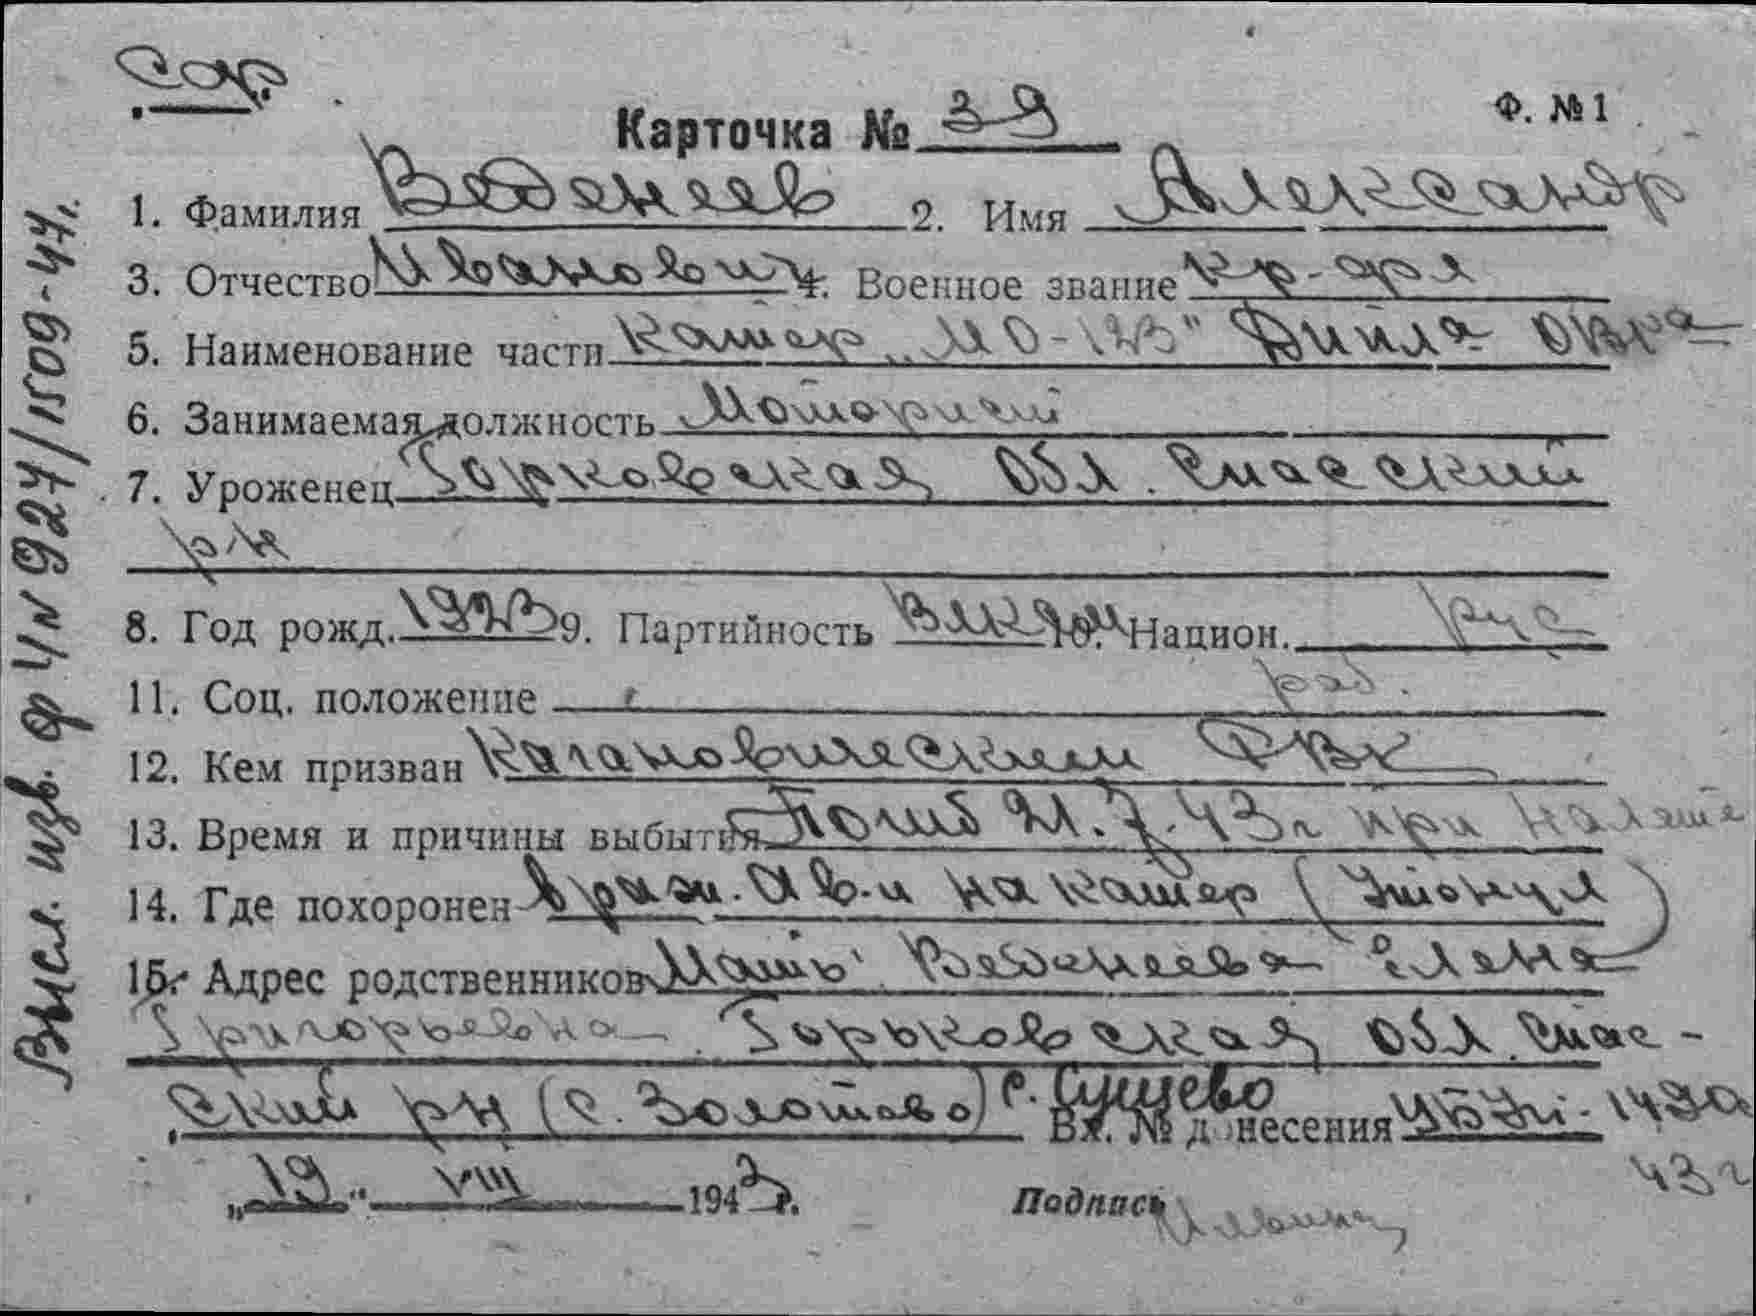 Ф. № 1
Карточка № 39
1. Фамилия Веденеев 2. Имя Александр
3. Отчество Иванович 4. Военное звание кр-фл
5. Наименование части Катер „МО-123" ОВРа
6. Занимаемая должность Моторист
7. Уроженец Горьковская обл. Спасский
р/н
8. Год рожд. 1923 9. Партийность ВЛКСМ 10. Национ. рус
11. Соц. положение раб.
12. Кем призван Кагановическим РВК
13. Время и причины выбытия Погиб 21.7.43 г при налёте
14. Где похоронен враж. ав-и на катер (Утонул)
15. Адрес родственников Мать Веденеева Елена
Григорьевна Горьковская обл. Спас-
ский р/н (с. Золотово) с. Сущево
Вх. № донесения
43 г
„19" VIII 1943 г.
Подпись
Высл. изв. ф 4 № 924/1509-44 г.